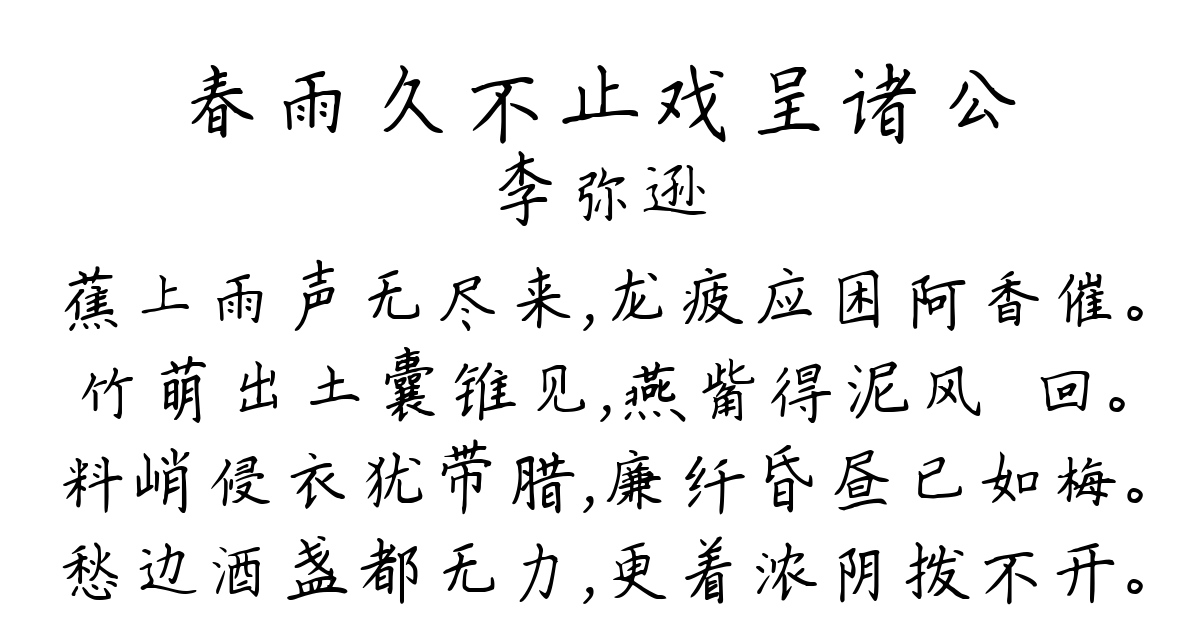 春雨久不止戏呈诸公
李弥逊
蕉上雨声无尽来,龙疲应困阿香催。
竹萌出土囊锥见,燕觜得泥风 回。
料峭侵衣犹带腊,廉纤昏昼已如梅。
愁边酒盏都无力,更着浓阴拨不开。